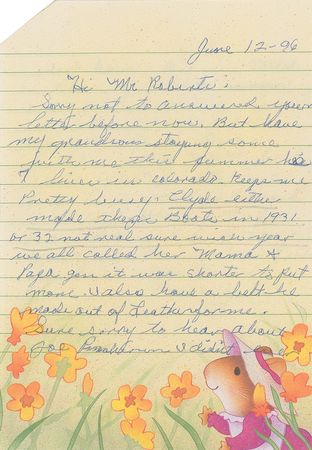 June 12-96
Hi Mr. Roberts:
Sorry not to answered your
letter before now. But have
my grandsons staying some
with me this summer he
lives in Colorado. Keeps me
Pretty busy. Clyde either
made these Boots in 1931
or 32 not real sure wich year
we all called her Mama &
Papa gon it was shorter to put
more. I also have a belt he
made out of Leather for me.
Sure sorry to hear about
Joe I didn't